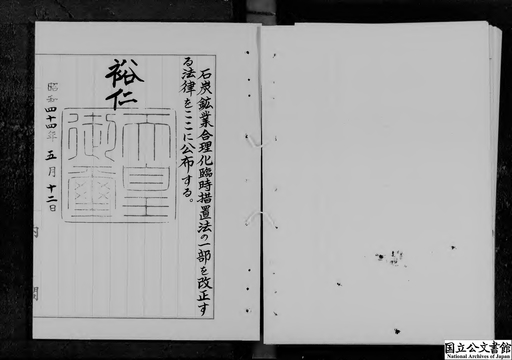 石炭鉱業合理化臨時措置法の一部を改正す
る法律をここに公布する。
裕仁
天皇
御璽
昭和四十四年五月十二日
内閣
国立公文書館
National Archives of Japan